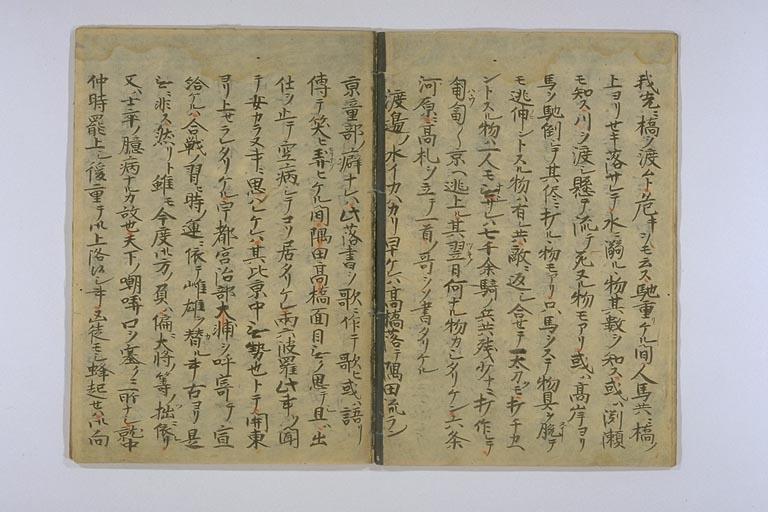 我先ニ橋ヲ渡ムト危キヲモ云ス馳重ケル間人馬共ニ橋ノ
上ヨリセキ落サレテ水ニ溺ル物其数ヲ知ス或ハ渕瀬
モ知ス川ヲ渡シ懸テ流テ死ヌル物モアリ或ハ高岸ヨリ
馬ヲ馳倒シテ其侭ニ打ルヽ物モアリ只馬ヲステ物具ヲ脱テ
モ逃伸ントスル物ハ有レ共敵ニ返シ合セテ一太刀モ打チカハ
ントスル物ハ一人モシ七千余騎ノ兵共残少ナニ打作レテ
匍匐々京ヘ逃上ル其翌日何ナル物カシタリケン六条
河原ニ高札ヲ立テ一首ノ哥ヲソ書タリケル
渡邉ノ水イカハカリ早ケレハ高橋落テ隅田流ラン
京童部ノ癖ナレハ此落書ヲ歌ニ作テ歌ヒ或ハ語リ
傳テ笑ヒ弄ヒケル間隅田高橋面目ヲ思テ且ハ出
仕ヲ止テ空病シテソ居タリケル両六波羅此事ヲ聞
テ安カラヌ事ニ思ハレケレハ其比京中勢也トテ関東
ヨリ上セラレタリケル宇都宮治部大浦ヲ呼寄テ宣
給ケルハ合戦ノ習ヒ時ノ運ニ依テ雌雄ノ替ル事古ヨリ是
ニ非ス然リト雖モ今度ハ方ノ負ハ偏ニ大将ノ等ノ拙ニ依リ
又ハ士卒ノ臆病ナルカ故也天下ノ嘲哢口ヲ塞クニ所ナシ就中
仲時罷上シ後ニ重テハ上洛ハシ事ハ凶徒モシ蜂起セハ向